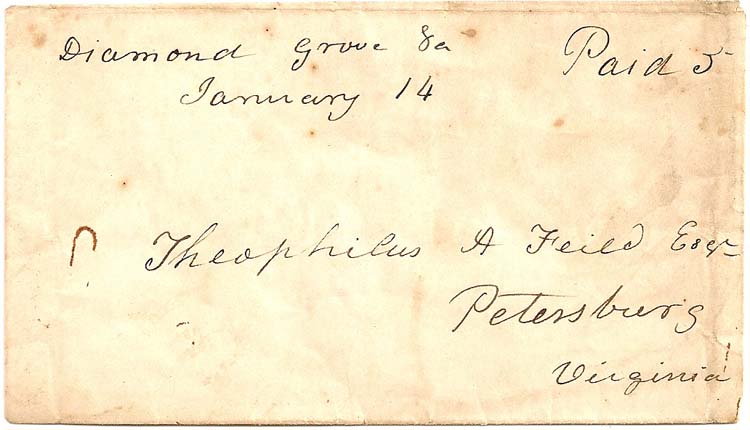 Diamond Grove Va
January 14
Paid 5
Theophilus A Feild Esqr
Petersburg
Virginia